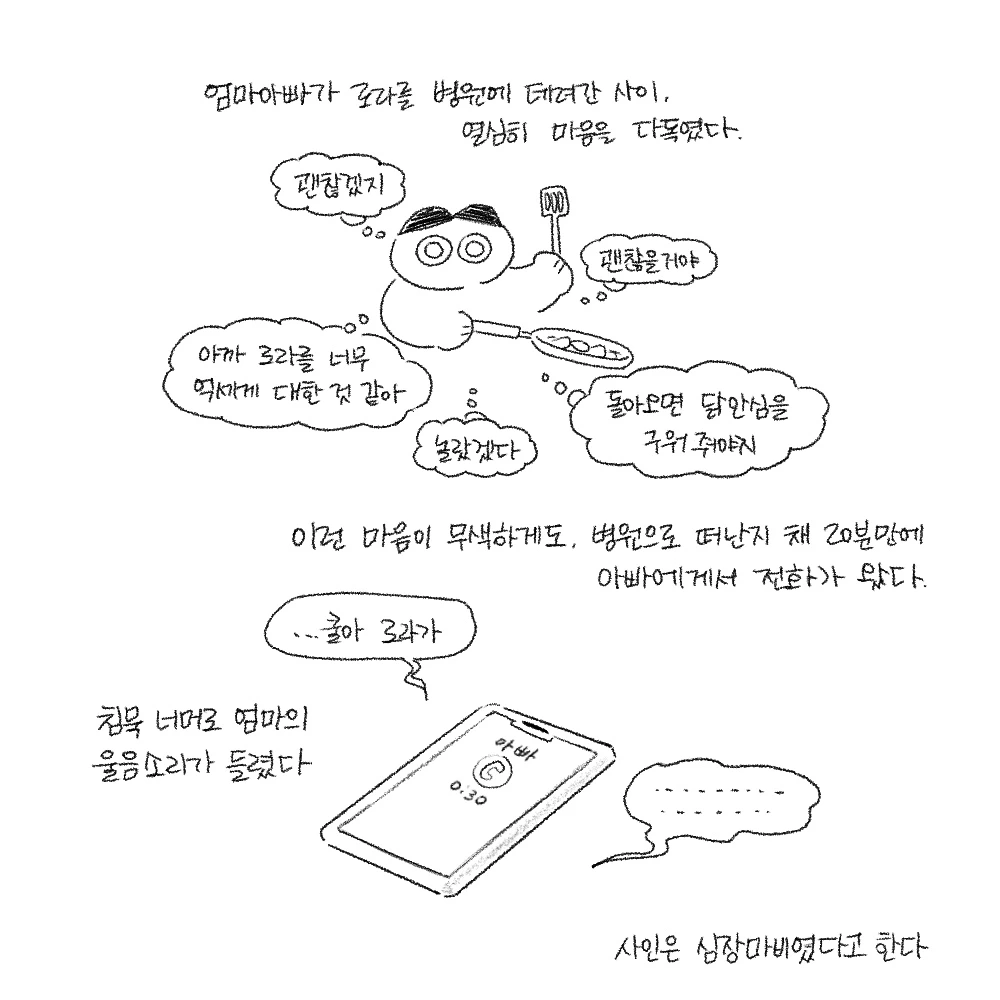 엄마아빠가 로라를 병원에 데려간 사이,
열심히 마음을 다독였다.
괜찮겠지
괜찮을거야
아까 로라를 너무
억세게 대한 것 같아
놀랐겠다
돌아오면 닭안심을
구워 줘야지
이런 마음이 무색하게도, 병원으로 떠난지 채 20분만에
아빠에게서 전화가 왔다.
...쿨아 로라가
침묵 너머로 엄마의
울음소리가 들렸다
아빠
0:30
사인은 심장마비였다고 한다